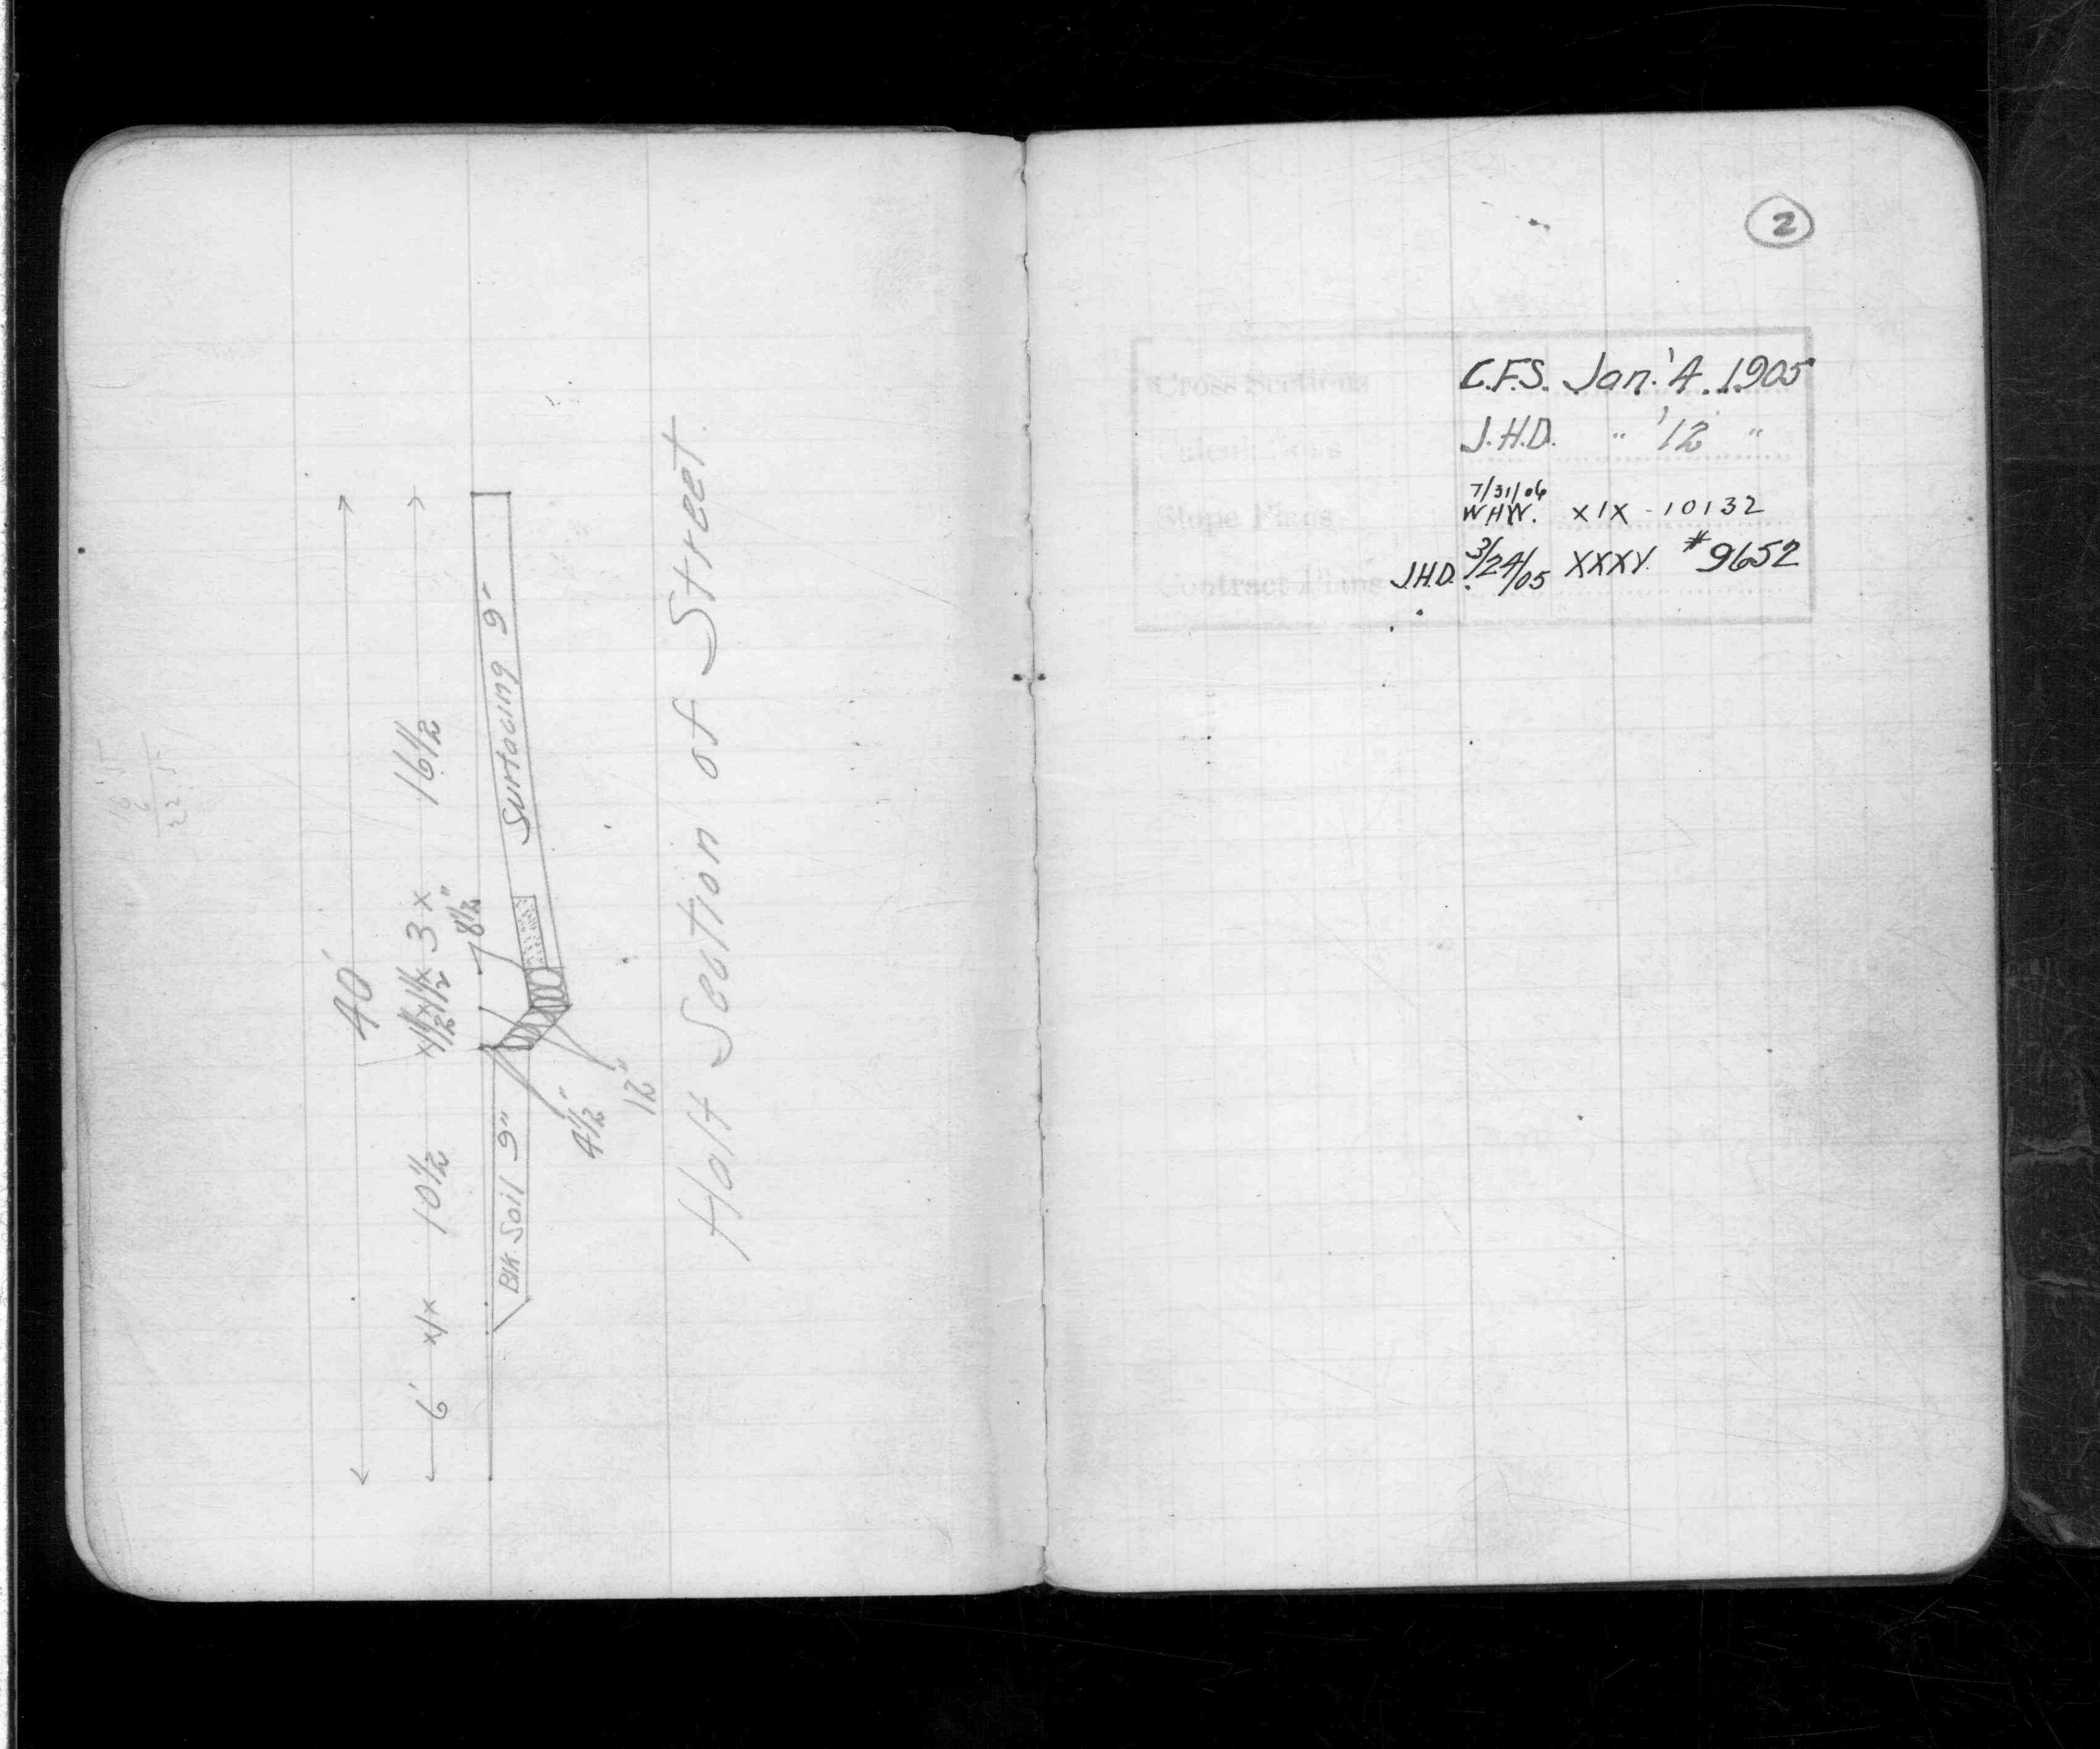 40'
6' x1x 10½ x½x1½x 3 x 16½
8½"
Blk. Soil 9" Surfacing 9"
4½"
12"
Half Section of Street
2
Cross Sections C.F.S. Jan. '4 1905
Calculations J.H.D. " '12 "
7/31/06
Slope Plans W.H.W. XIX - 10132
Contract Plans J.H.D. 3/24/05 XXXV. #9652